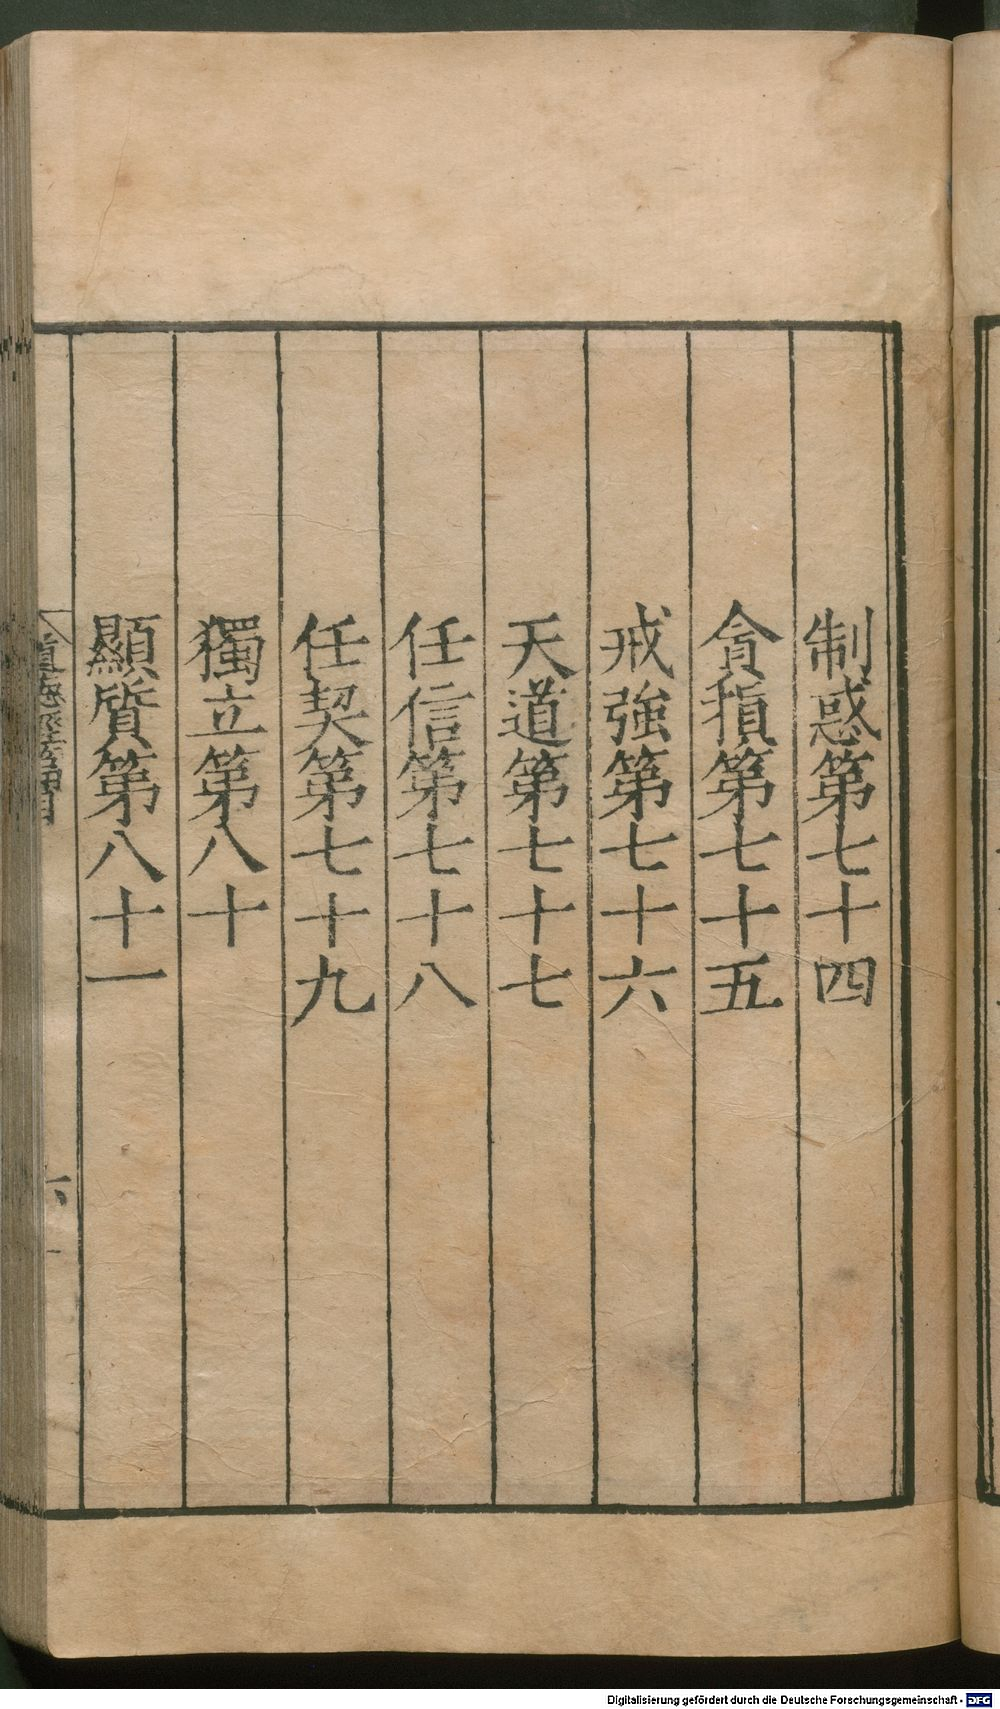 制惑第七十四
貪損第七十五
戒強第七十六
天道第七十七
任信第七十八
任契第七十九
獨立第八十
顯質第八十一
道德經篇目
六
Digitalisierung gefördert durch die Deutsche Forschungsgemeinschaft - DFG